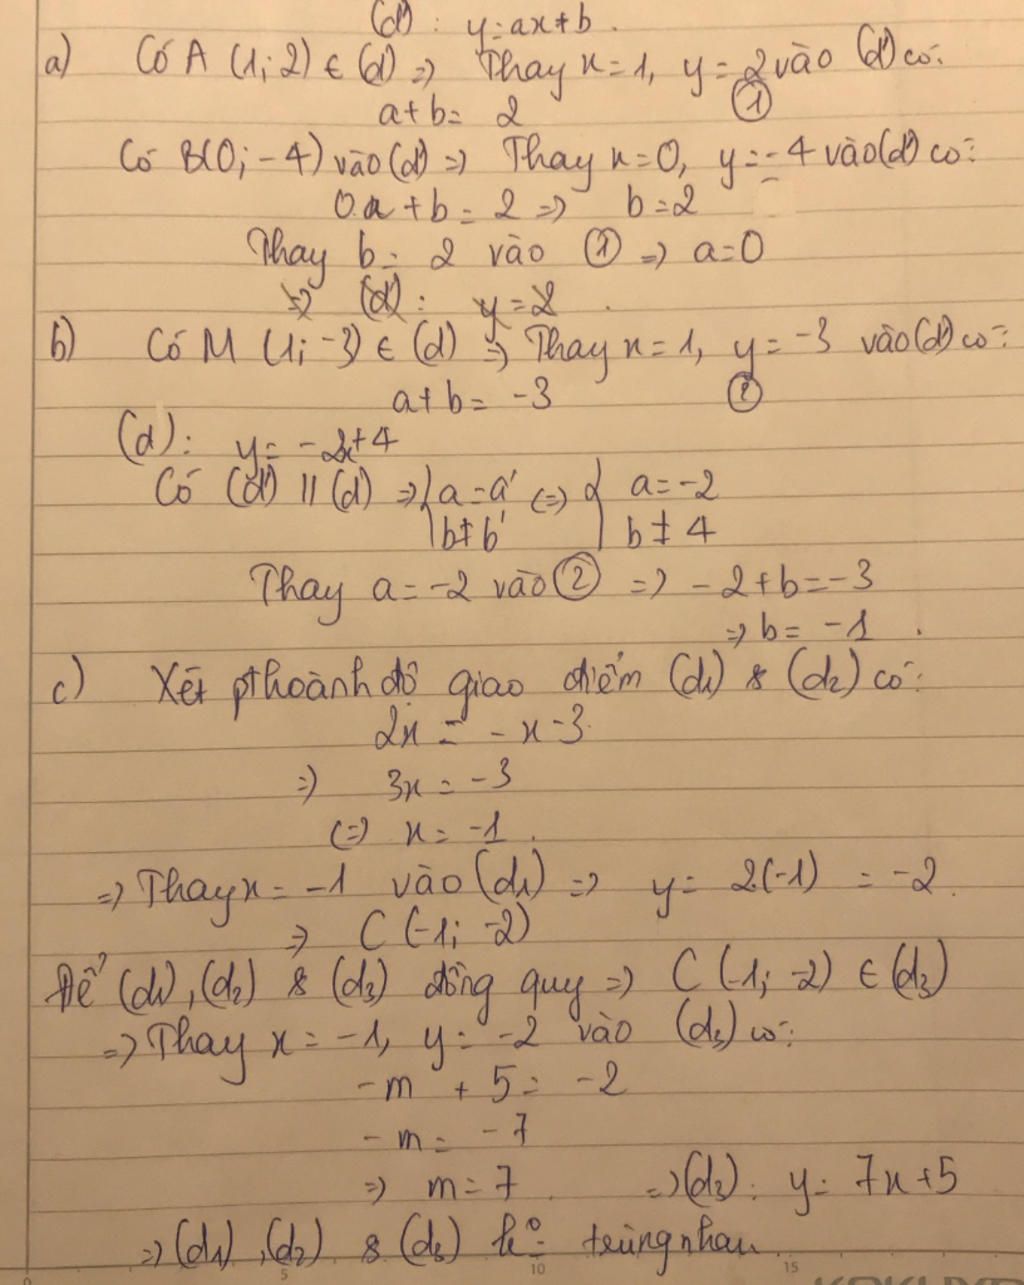 (d): y=ax+b.
a) Có A (1;2) ∈ (d) => Thay x=1, y=2 vào (d) có:
a+b= 2 ①
Có B(0;-4) vào (d) => Thay x=0, y=-4 vào (d) có:
0.a+b= 2 => b=2
Thay b= 2 vào ① => a=0
=> (d): y=2.
b) Có M (1;-3) ∈ (d) => Thay x=1, y=-3 vào (d) có:
a+b= -3 ②
(d): y= -2x+4
Có (d) // (d) => { a=a' <=> { a=-2
b≠b' b≠4
Thay a=-2 vào ② => -2+b=-3
=> b= -1.
c) Xét pt hoành độ giao điểm (d1) & (d2) có:
2x = -x-3.
=> 3x=-3
<=> x=-1.
=> Thay x= -1 vào (d1) => y= 2.(-1) = -2.
=> C (-1; -2)
Để (d1), (d2) & (d3) đồng quy => C (-1; -2) ∈ (d3)
=> Thay x= -1, y= -2 vào (d3) có:
-m + 5= -2
-m= -7
=> m=7. => (d3): y= 7x+5
=> (d1), (d2) & (d3) k° trùng nhau.
5 10 15